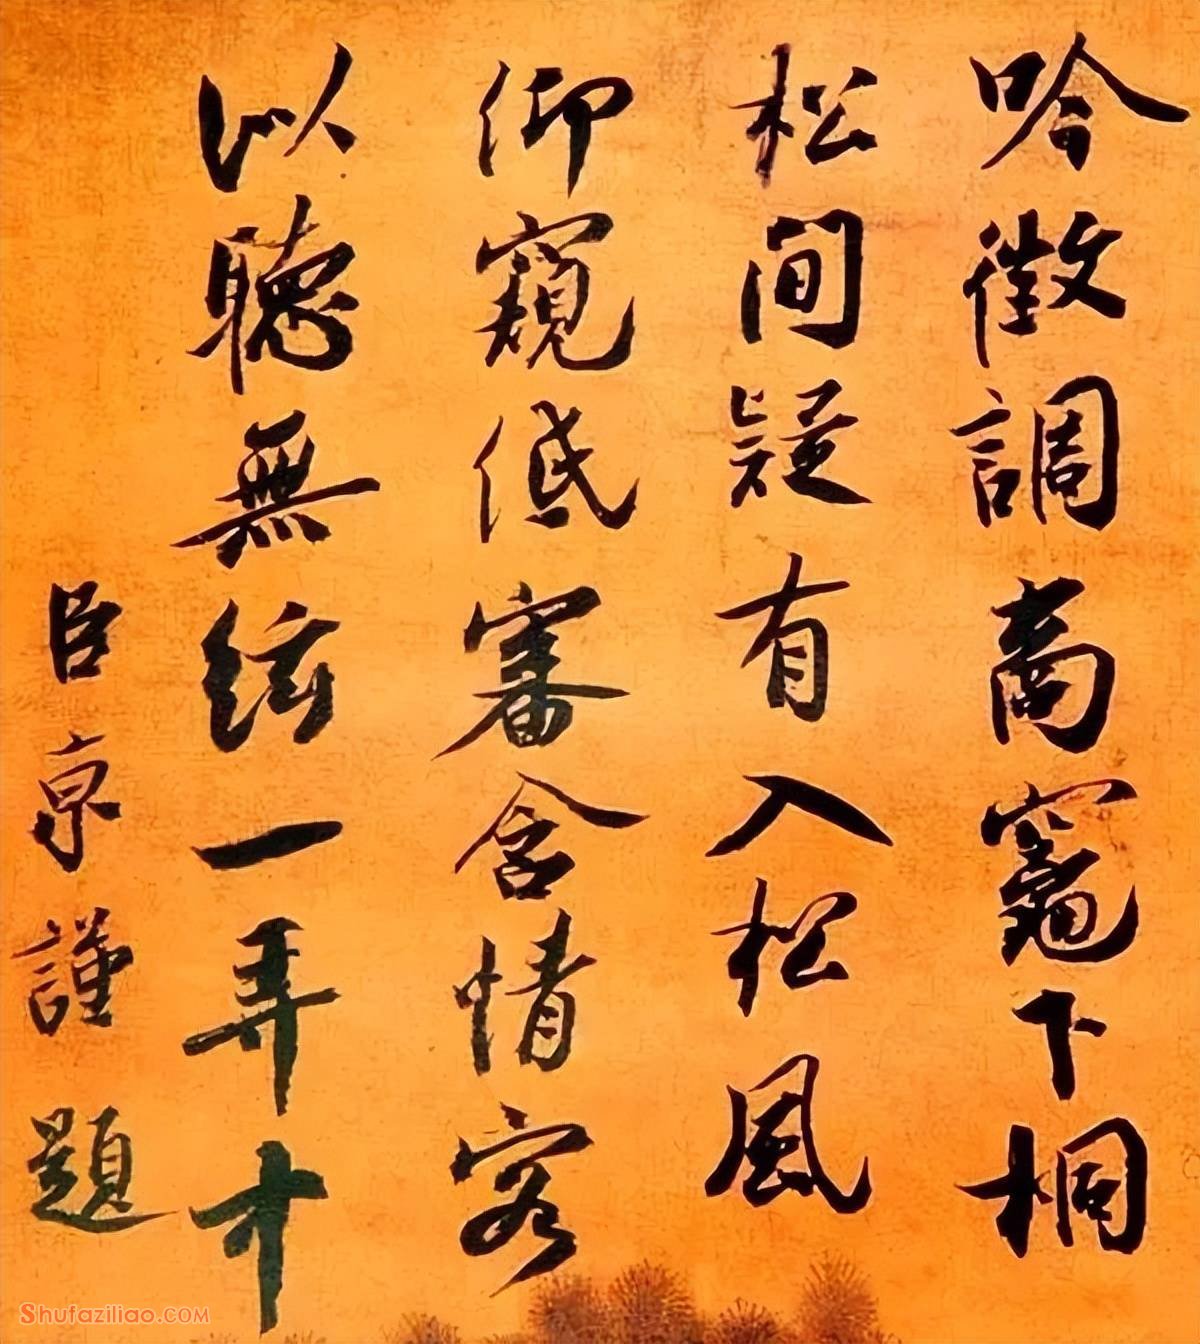 吟徵調商竈下桐
松間疑有入松風
仰窺低審含情客
似聽無絃一弄中
臣京謹題
Shufaziliao.COM